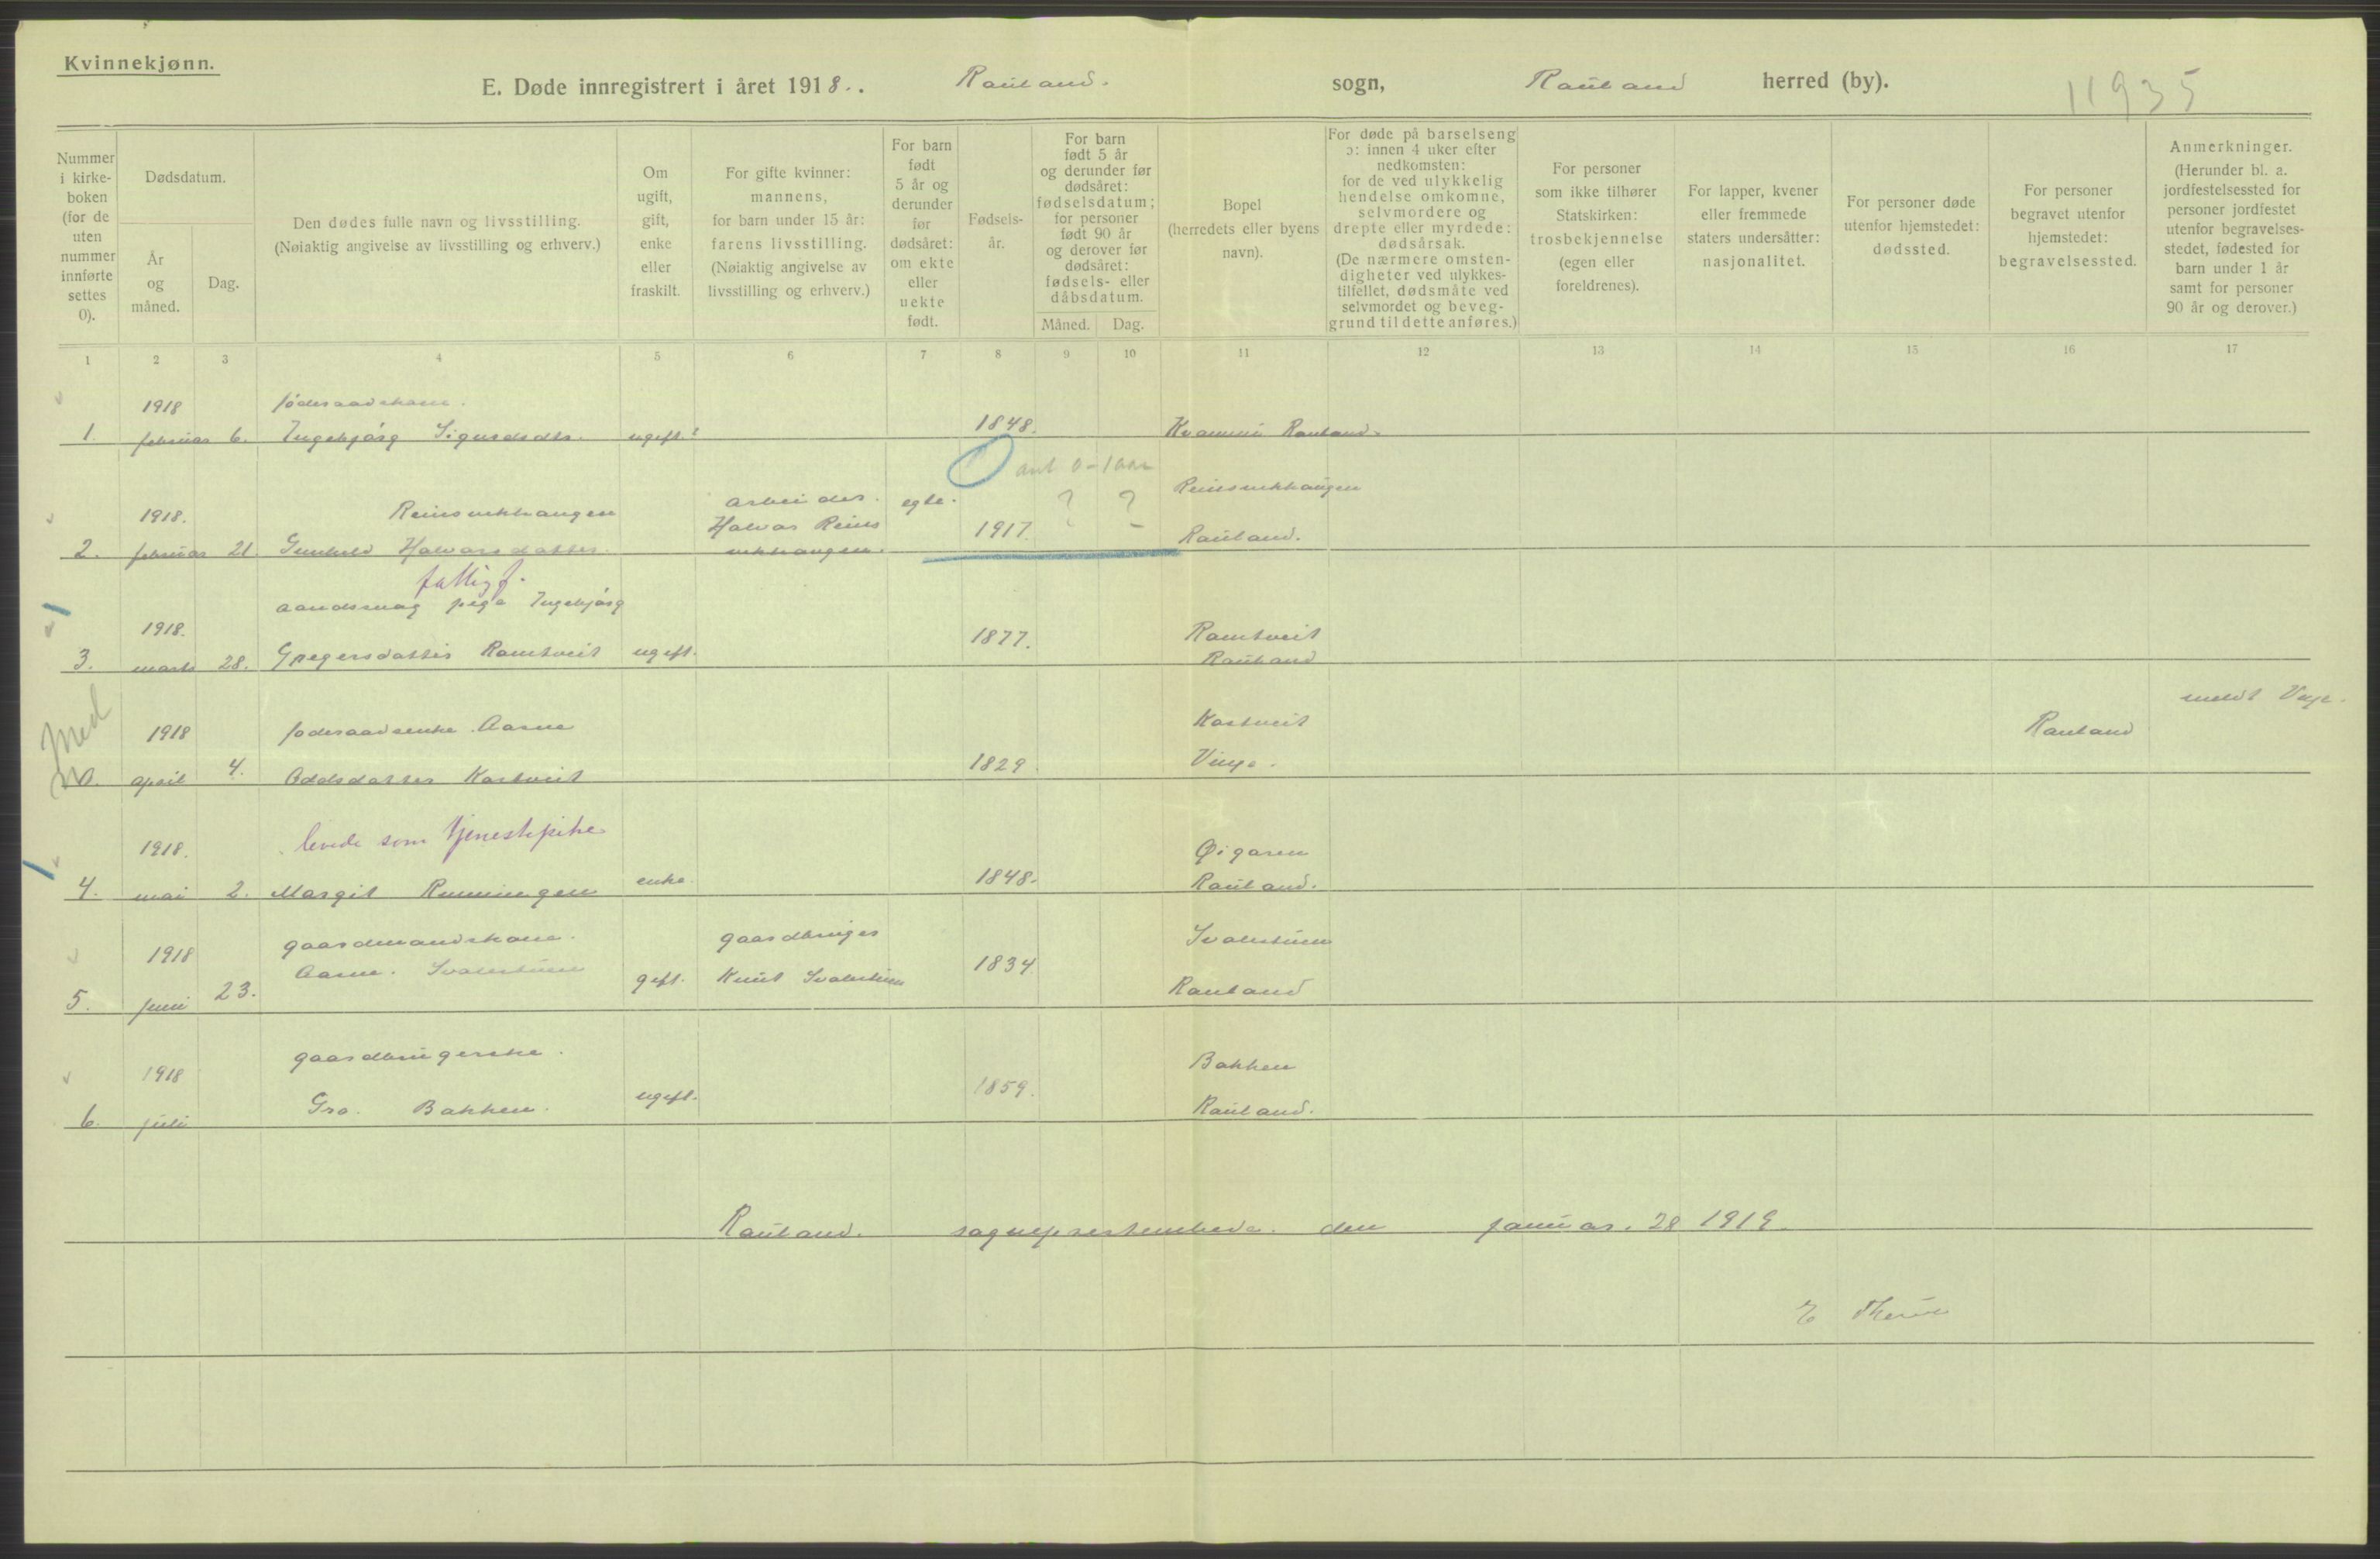 Kvinnekjønn.
E. Døde innregistrert i året 1918. . Rauland. sogn, Rauland herred (by). 11935
Nummer i kirke-boken (for de uten nummer innførte settes 0).
Dødsdatum.
År og måned.
Dag.
Den dødes fulle navn og livsstilling.
(Nøiaktig angivelse av livsstilling og erhverv.)
Om ugift, gift, enke eller fraskilt.
For gifte kvinner: mannens, for barn under 15 år: farens livsstilling. (Nøiaktig angivelse av livsstilling og erhverv.)
For barn født 5 år og derunder før dødsåret: om ekte eller uekte født.
Fødsels-år.
For barn født 5 år og derunder før dødsåret: fødselsdatum; for personer født 90 år og derover før dødsåret: fødsels- eller dåbsdatum.
Måned. Dag.
Bopel (herredets eller byens navn).
For døde på barselseng ɔ: innen 4 uker efter nedkomsten: for de ved ulykkelig hendelse omkomne, selvmordere og drepte eller myrdede: dødsårsak. (De nærmere omsten-digheter ved ulykkes-tilfellet, dødsmåte ved selvmordet og beveg-grund til dette anføres.)
For personer som ikke tilhører Statskirken: trosbekjennelse (egen eller foreldrenes).
For lapper, kvener eller fremmede staters undersåtter: nasjonalitet.
For personer døde utenfor hjemstedet: dødssted.
For personer begravet utenfor hjemstedet: begravelsessted.
Anmerkninger. (Herunder bl. a. jordfestelsessted for personer jordfestet utenfor begravelses-stedet, fødested for barn under 1 år samt for personer 90 år og derover.)
1 2 3 4 5 6 7 8 9 10 11 12 13 14 15 16 17
1918 føderaadskone.
1. februar 6. Ingebjørg Sigurdsdtr. ugift.? 1848. Kvammen Rauland.
ant 0-1 aar
1918. Reinsvekhaugen arbeider. egte. ? ? Reinsvekhaugen
2. februar 21. Gunhild Halvorsdatter. Halvor Reins 1917. Rauland.
vekhaugen.
fattigf.
1918. aandssvag pige Ingebjørg Ramtveit
3. marts 28. Gregersdatter Ramtveit ugift. 1877. Rauland
Med meldt Vinje.
1918 føderaadsenke Aasne Kostveit Rauland
0. april 4. Oddsdatter Kostveit 1829. Vinje.
1918. levede som tjenestepike Øigaren
4. mai 2. Margit Rumingen enke. 1848. Rauland.
1918 gaardmandskone. gaardbruger
Aasne. gift. Knut 1834
5. juni 23. Rauland
1918 gaardbrugerske. Bakken
6. juli Gro. Bakken. ugift. 1859. Rauland.
Rauland. sogneprestembede. den januar. 28 1919.